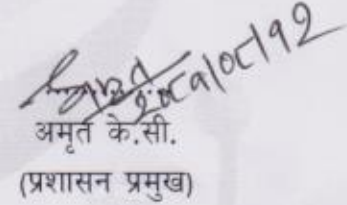 २०८१/०८/१२
अमृत के.सी.
(प्रशासन प्रमुख)